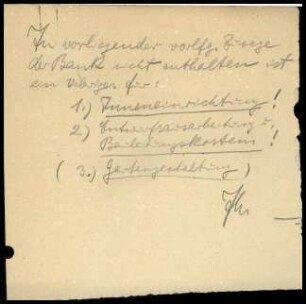 In vorliegender vorlfg.
der Bank nicht enthalten ist
ein für:
1.) Inneneinrichtung!
2.) Entwurfsausarbeitung u.
Bauleitungskosten!
(3.) Gartengestaltung)